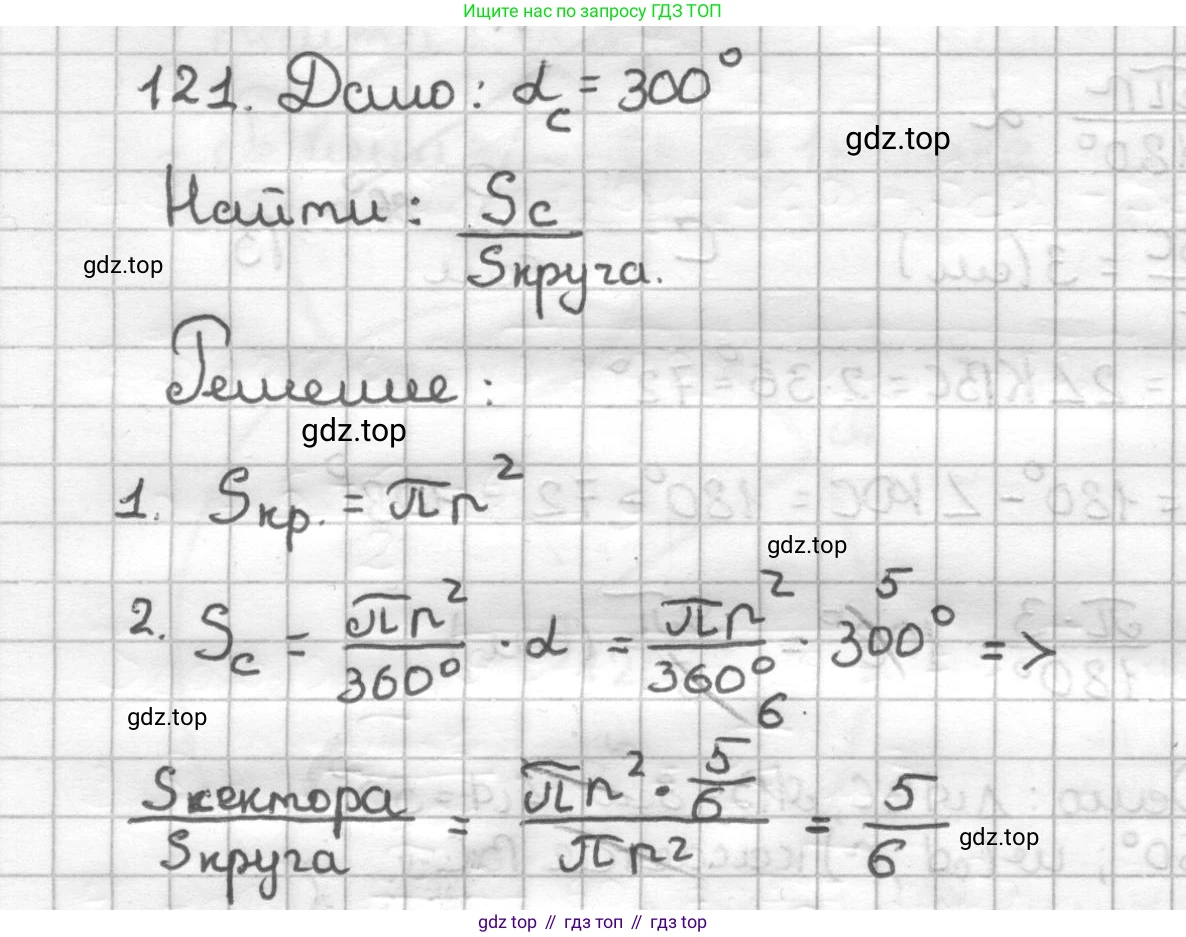 Ищите нас по запросу ГДЗ ТОП
121. Дано: α_c = 300°
gdz.top
Найти: Sс / Sкруга.
gdz.top
Решение:
gdz.top
1. Sкр. = πr²
gdz.top
2. Sс = πr²/360° · α = πr²/360° · 300° => 5 6
gdz.top
Sсектора / Sкруга = πr² · 5/6 / πr² = 5/6
gdz.top
gdz top // гдз топ // gdz top